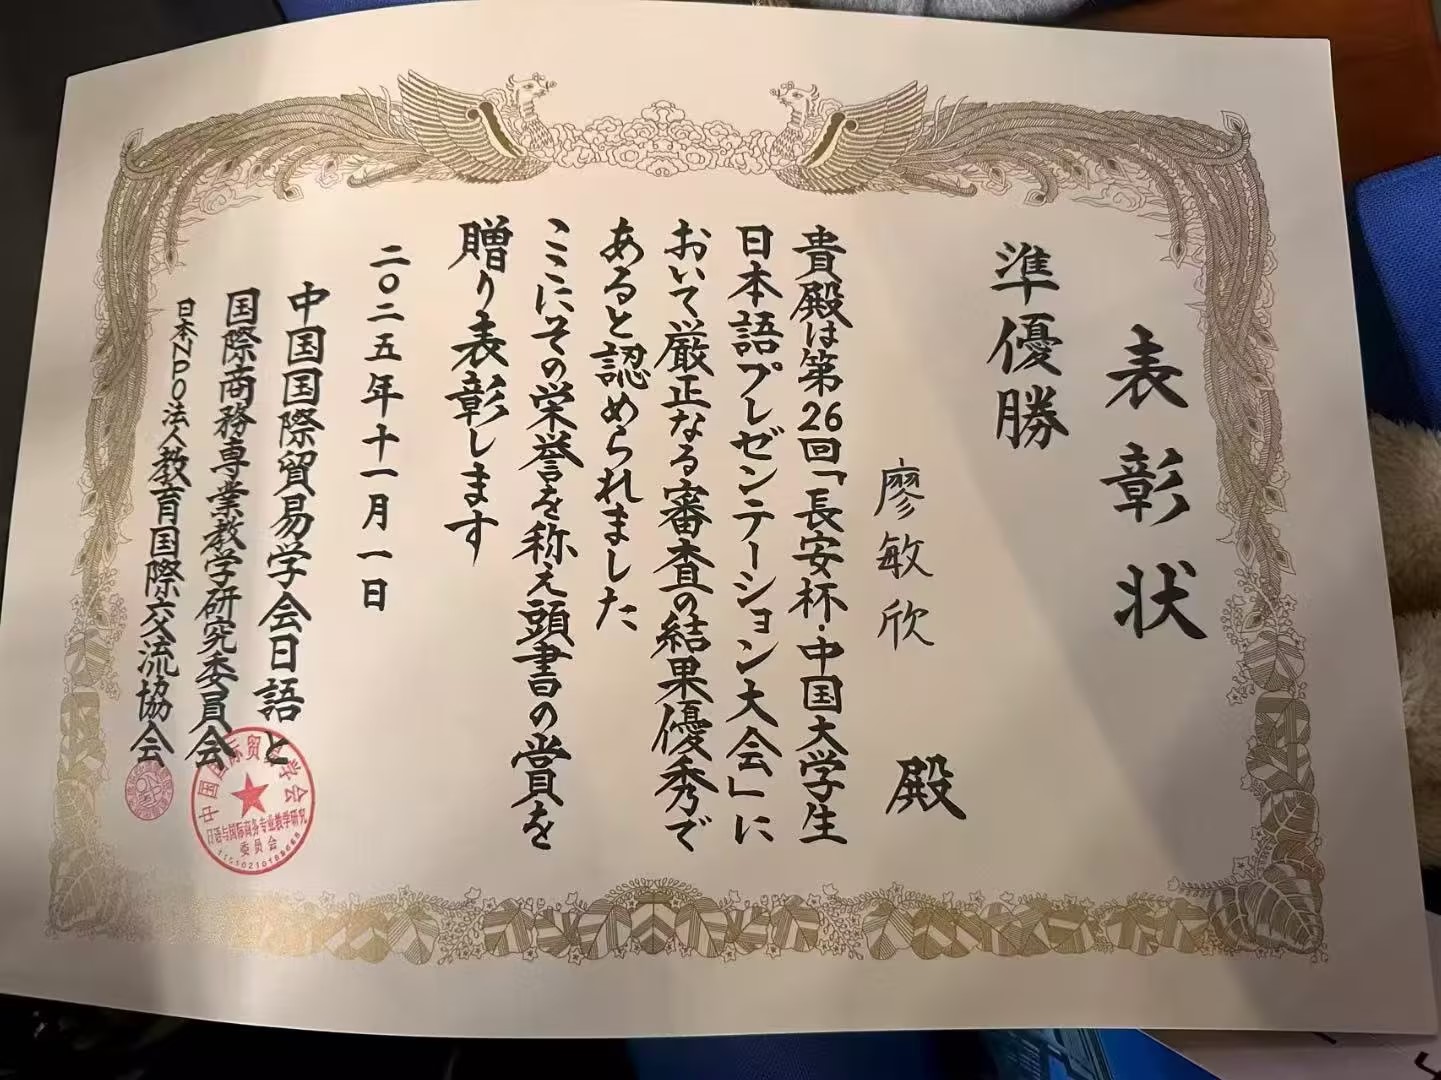 表彰状
準優勝
廖敏欣 殿
貴殿は第26回「長安杯・中国大学生
日本語プレゼンテーション大会」に
おいて厳正なる審査の結果優秀で
あると認められました
ここにその栄誉を称え頭書の賞を
贈り表彰します
二〇二五年十一月一日
中国国際貿易学会日語と
国際商務専業教学研究委員会
日本NPO法人教育国際交流協会
中国国际贸易学会
日语与国际商务专业教学研究
委员会